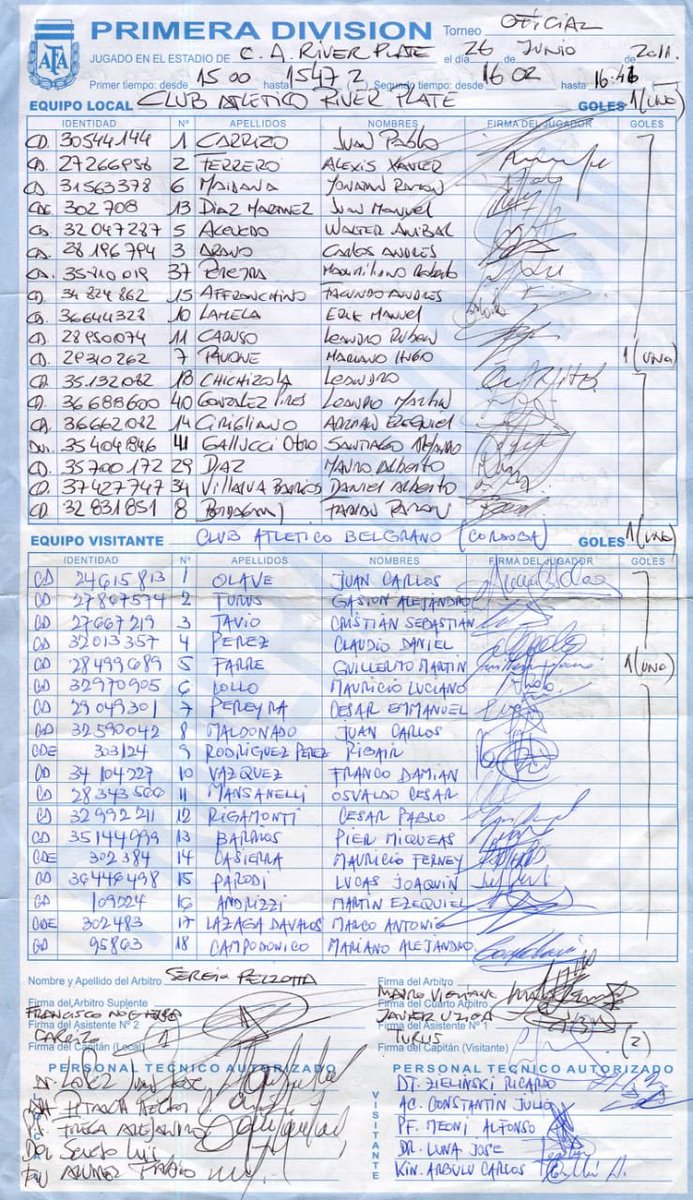 AFA
PRIMERA DIVISION Torneo OFICIAL
JUGADO EN EL ESTADIO DE C. A. RIVER PLATE el día 26 JUNIO 2011.
Primer tiempo: desde 15 00 hasta 1547 2 Segundo tiempo: desde 16 02 hasta 16:48
EQUIPO LOCAL CLUB ATLETICO RIVER PLATE GOLES 1 (UNO)
IDENTIDAD Nº APELLIDOS NOMBRES FIRMA DEL JUGADOR GOLES
CD. 30544144 1 CARRIZO JUAN PABLO
CD. 27266956 2 FERRERO ALEXIS XAVIER
CD. 31563378 6 MAIDANA YONATAN RAMON
CDE 302708 13 DIAZ MARTINEZ JUAN MANUEL
CD. 32047227 5 ACEVEDO WALTER ANIBAL
CD. 28196794 3 ARANO CARLOS ANDRES
CD. 35810019 37 PEREYRA MAXIMILIANO ROBERTO
CD. 34824862 15 AFFRANCHINO FACUNDO ANDRES
CD. 36644328 10 LAMELA ERIK MANUEL
CD. 28950074 11 CARUSO LEANDRO RUBEN
CD. 29310262 7 PAVONE MARIANO HUGO 1 (UNO)
CD. 35132082 18 CHICHIZOLA LEANDRO
CD. 36688600 40 GONZALEZ PIRES LEANDRO MARTIN
CD. 36662082 14 CIRIGLIANO ADRIAN EZEQUIEL
DNI. 35404846 41 GALLUCCI OTERO SANTIAGO
CD. 35700172 29 DIAZ MAURO ALBERTO
CD. 37427747 34 VILLALVA BARRIOS DANIEL ALBERTO
CD. 32831851 8 BORDAGARAY FABIAN RAMON
EQUIPO VISITANTE CLUB ATLETICO BELGRANO (CORDOBA) GOLES 1 (UNO)
IDENTIDAD Nº APELLIDOS NOMBRES FIRMA DEL JUGADOR GOLES
CD 24615813 1 OLAVE JUAN CARLOS
CD 27867574 2 TURUS GASTON ALEJANDRO
CD 27667219 3 TAVIO CRISTIAN SEBASTIAN
CD 32013357 4 PEREZ CLAUDIO DANIEL
CD 28499689 5 FARRE GUILLERMO MARTIN 1 (UNO)
CD 32970905 6 LOLLO MAURICIO LUCIANO
CD 29049301 7 PEREYRA CESAR EMMANUEL
CD 32590042 8 MALDONADO JUAN CARLOS
CDE 303124 9 RODRIGUEZ PEREZ RIBAIR
CD 34104227 10 VAZQUEZ FRANCO DAMIAN
CD 28343500 11 MANSANELLI OSVALDO CESAR
CD 32992211 12 RIGAMONTI CESAR PABLO
CD 35144999 13 BARRIOS PIER MIQUEAS
CDE 302384 14 CASIERRA MAURICIO FERNEY
CD 36446498 15 PARODI LUCAS JOAQUIN
CD 109024 16 ANDRIZZI MARTIN EZEQUIEL
CDE 302483 17 LAZAGA DAVALOS MARCO ANTONIO
CD 95863 18 CAMPODONICO MARIANO ALEJANDRO
Nombre y Apellido del Arbitro SERGIO PEZZOTTA Firma del Arbitro
Firma del Arbitro Suplente MAURO Firma del Cuarto Arbitro
FRANCISCO JAVIER
Firma del Asistente Nº 2 Firma del Asistente Nº 1
CARRIZO 1 TURUS (2)
Firma del Capitán (Local) Firma del Capitán (Visitante)
PERSONAL TECNICO AUTORIZADO PERSONAL TECNICO AUTORIZADO
VISITANTE
DT. LOPEZ JUAN JOSE DT. ZIELINSKI RICARDO
AC. CONSTANTIN JULIO
PF. ALEJANDRO PF. MEONI ALFONSO
LUIS DR. LUNA JOSE
KIN. ARBULU CARLOS